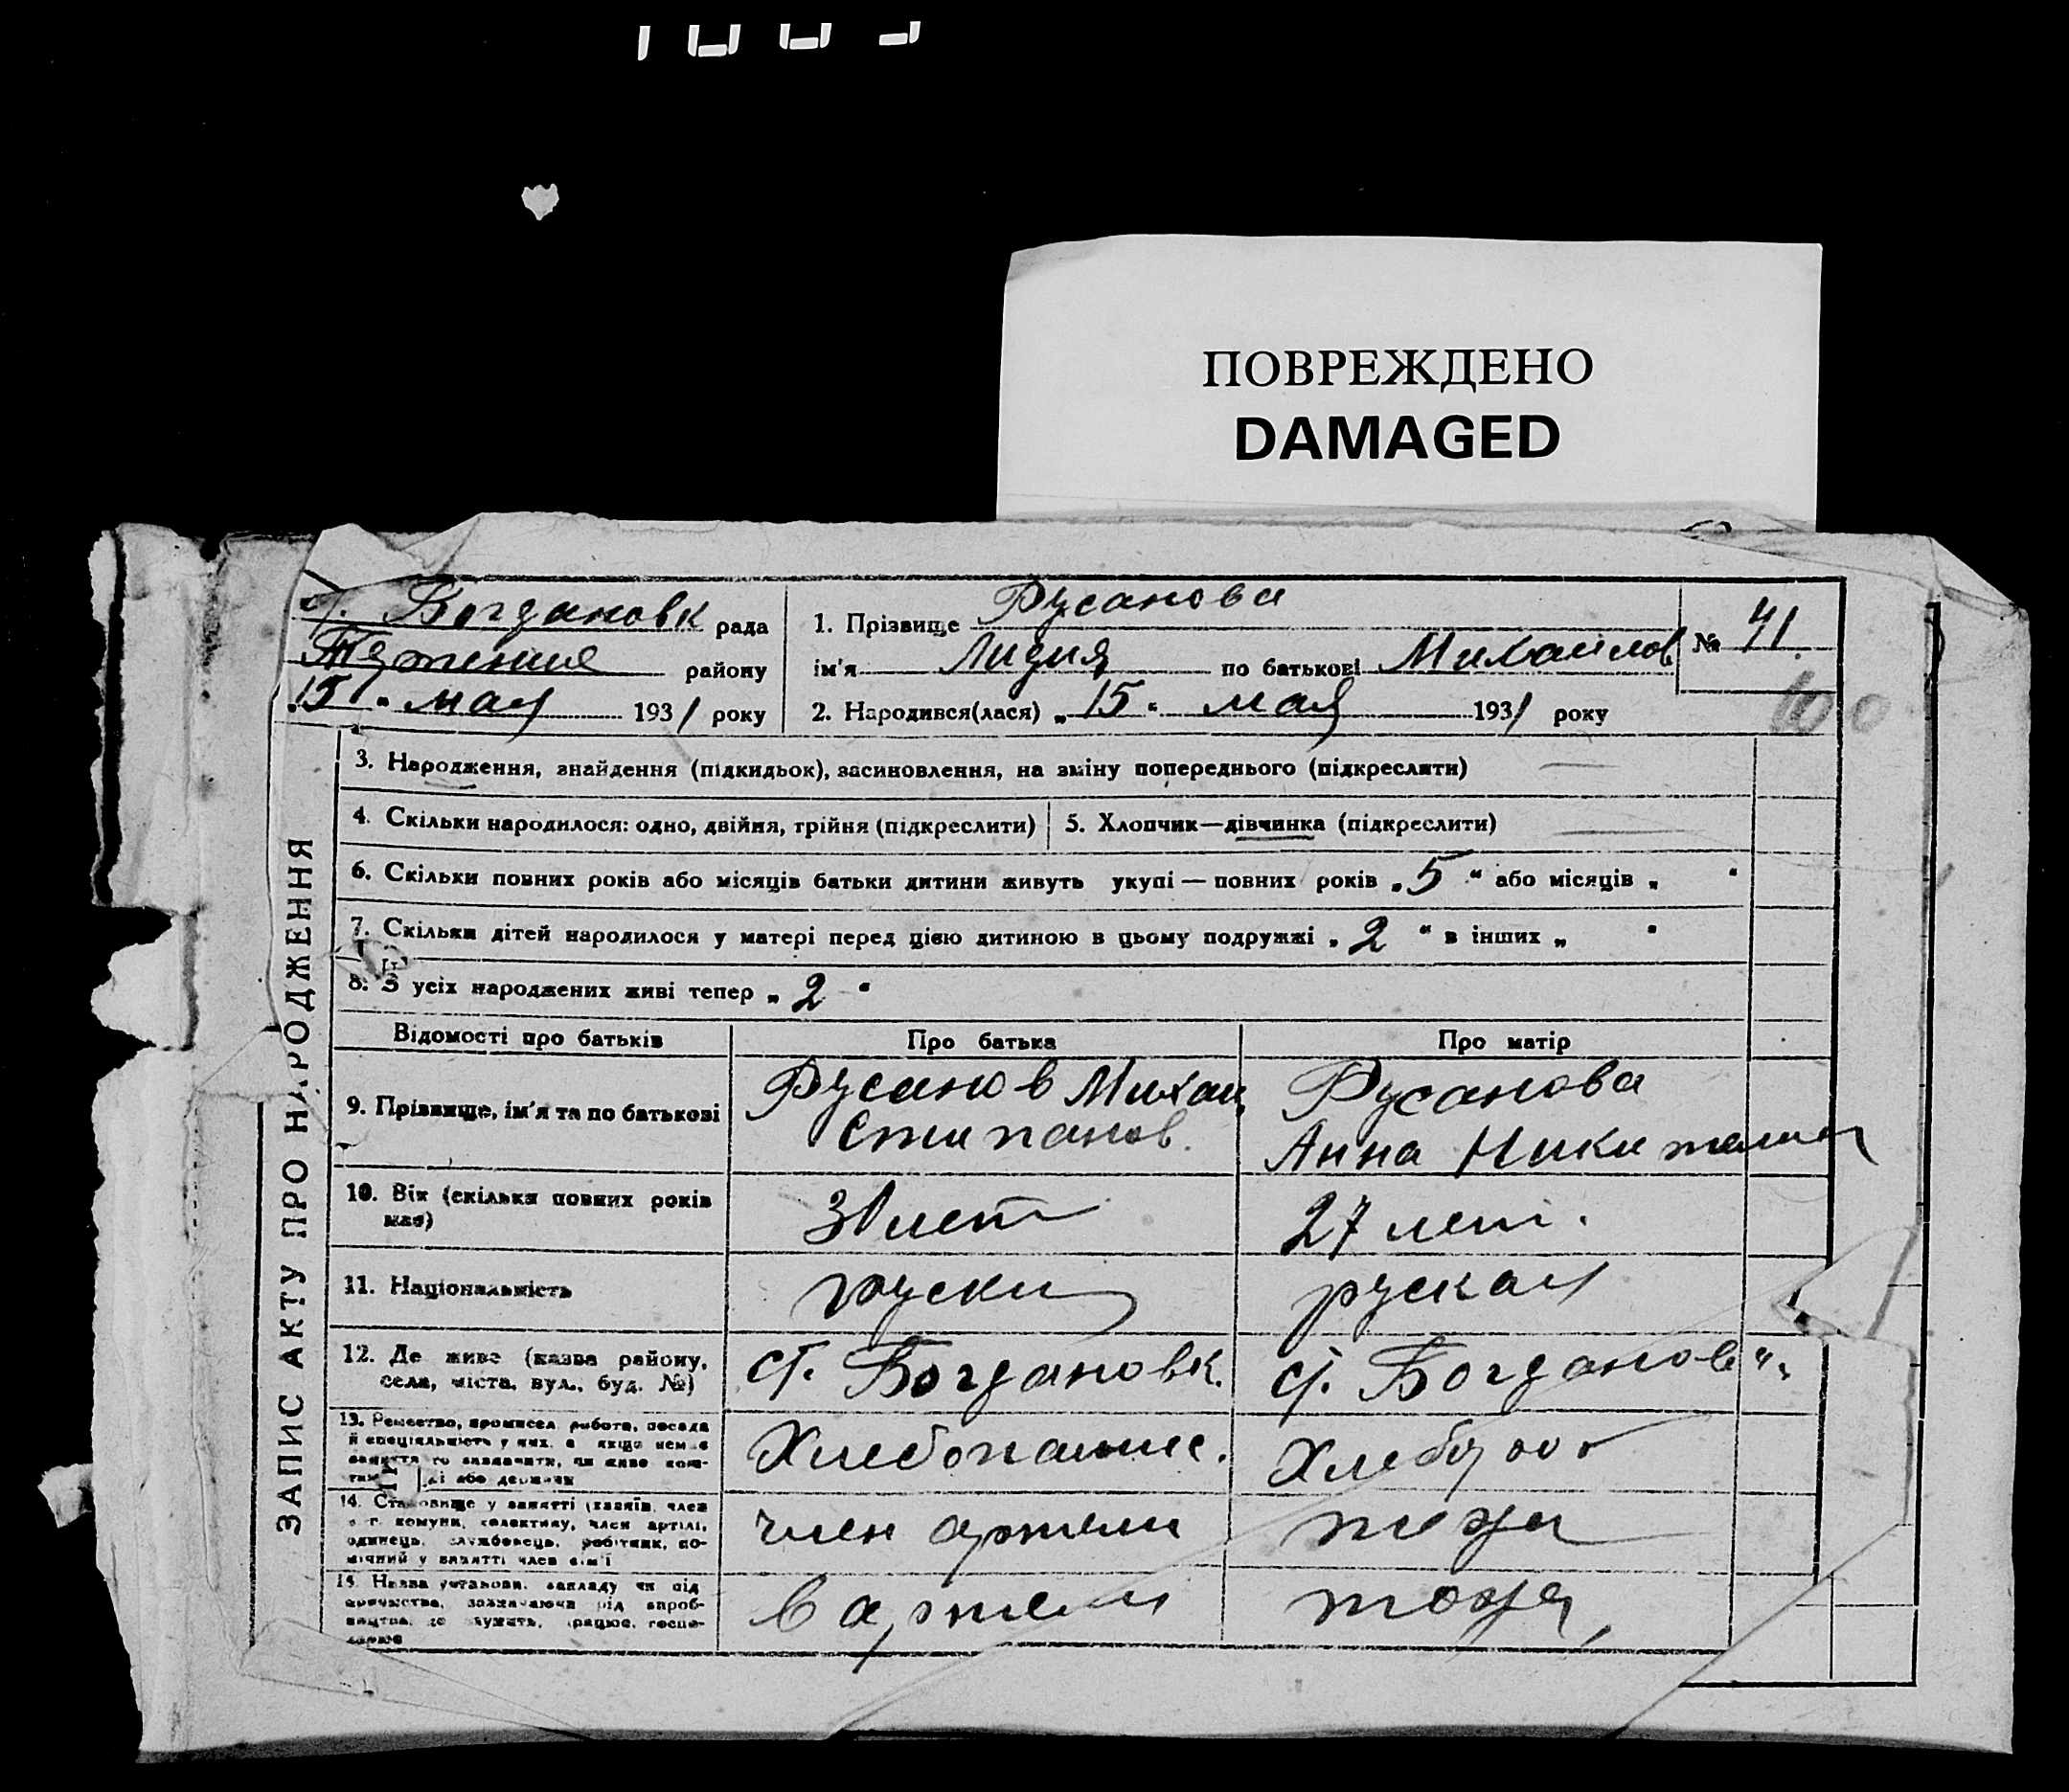 ПОВРЕЖДЕНО
DAMAGED
с. Богдановк рада
району
„15“ мая 1931 року
1. Прізвище Русанова
ім'я Лидия по батькові Михайлов
2. Народився(лася) „15“ мая 1931 року
№ 41.
100
ЗАПИС АКТУ ПРО НАРОДЖЕННЯ
3. Народження, знайдення (підкидьок), засиновлення, на зміну попереднього (підкреслити)
4. Скільки народилося: одно, двійня, трійня (підкреслити)
5. Хлопчик—дівчинка (підкреслити)
6. Скільки повних років або місяців батьки дитини живуть укупі — повних років „5“ або місяців „ “
7. Скільки дітей народилося у матері перед цією дитиною в цьому подружжі „2“ в інших „ “
8. З усіх народжених живі тепер „2“
Відомості про батьків Про батька Про матір
9. Прізвище, ім'я та по батькові
Русанов Михаи
Стипанов.
Русанова
Анна Никитишна
10. Вік (скільки повних років
має)
30 лет
27 лет.
11. Національність
руски
руская
12. Де живе (назва району,
села, міста, вул., буд. №)
с. Богдановк.
с. Богдановк
13. Ремество, промисел, робота, посада
й спеціяльність у них, а якщо немає
заняття то зазначити, чи живе кош-
або держави
Хлебопашис.
Хлебороб
14. Становище у занятті (хазяїн, член
с.-г. комуни, колективу, член артілі,
одинець, службовець, робітник, по-
мічний у занятті член сім'ї
член артели
тоже
15. Назва установи, закладу чи під
приємства, зазначаючи рід вироб-
ництва, де служить, працює, госпо-
дарює
в артели
тоже